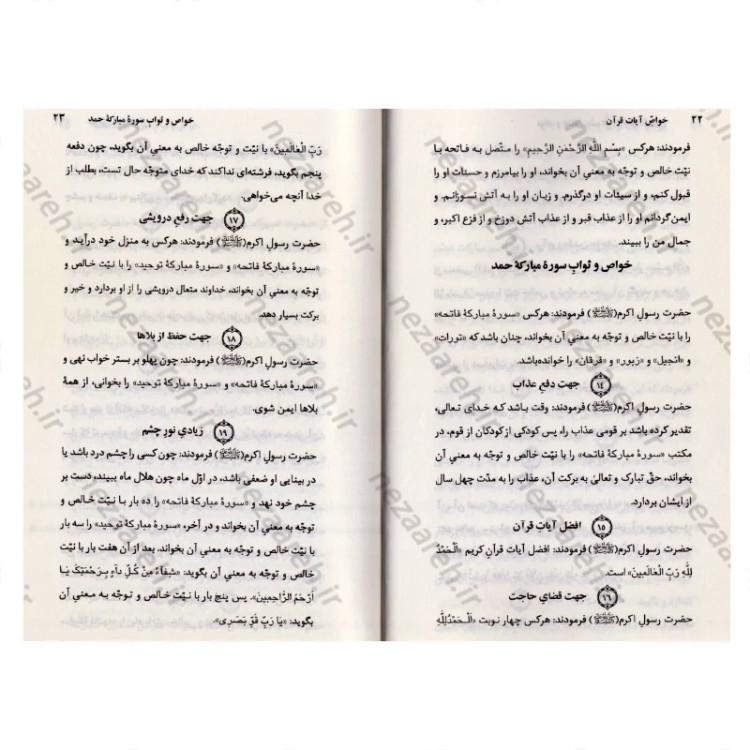 ۲۲ خواصّ آیات قرآن
فرمودند: هرکس «بِسْمِ اللّٰهِ الرَّحْمٰنِ الرَّحیمِ» را متّصل به فاتحه با
نیّت خالص و توجّه به معنیِ آن بخواند، او را بیامرزم و حسنات او را
قبول کنم، و از سیئات او درگذرم. و زبان او را به آتش نسوزانم. و
ایمن گردانم او را از عذاب قبر و از عذاب آتش دوزخ و از فزع اکبر، و
جمال من را ببیند.
خواص و ثوابِ سورهٔ مبارکهٔ حمد
حضرت رسولِ اکرم(ﷺ) فرمودند: هرکس «سورهٔ مبارکهٔ فاتحه»
را با نیّت خالص و توجّه به معنیِ آن بخواند، چنان باشد که «تورات»
و «انجیل» و «زبور» و «فرقان» را خوانده‌باشد.
۱۴ جهت دفعِ عذاب
حضرت رسولِ اکرم(ﷺ) فرمودند: وقت باشد که خدای تعالی،
تقدیر کرده باشد بر قومی عذاب را، پس کودکی از کودکان از قوم، در
مکتب «سورهٔ مبارکهٔ فاتحه» را با نیّت خالص و توجّه به معنیِ آن
بخواند، حقّ تبارک و تعالیٰ به برکت آن، عذاب را به مدّت چهل سال
از ایشان بردارد.
۱۵ افضل آیاتِ قرآن
حضرت رسولِ اکرم(ﷺ) فرمودند: افضل آیات قرآنِ کریم «اَلْحَمْدُ
لِلّٰهِ رَبِّ الْعالَمینَ» است.
۱۶ جهت قضایِ حاجت
حضرت رسولِ اکرم(ﷺ) فرمودند: هرکس چهار نوبت «اَلْحَمْدُلِلّٰهِ
خواص و ثوابِ سورهٔ مبارکهٔ حمد ۲۳
رَبِّ الْعالَمینَ» با نیّت و توجّه خالص به معنیِ آن بگوید، چون دفعه
پنجم بگوید، فرشته‌ای نداکند که خدای متوجّه حال تست، بطلب از
خدا آنچه می‌خواهی.
۱۷ جهت رفعِ درویشی
حضرت رسولِ اکرم(ﷺ) فرمودند: هرکس به منزل خود درآید و
«سورهٔ مبارکهٔ فاتحه» و «سورهٔ مبارکهٔ توحید» را با نیّت خالص و
توجّه به معنیِ آن بخواند، خداوند متعال درویشی را از او بردارد و خیر و
برکت بسیار دهد.
۱۸ جهت حفظ از بلاها
حضرت رسولِ اکرم(ﷺ) فرمودند: چون پهلو بر بستر خواب نهی و
«سورهٔ مبارکهٔ فاتحه» و «سورهٔ مبارکهٔ توحید» را بخوانی، از همهٔ
بلاها ایمن شوی.
۱۹ زیادیِ نورِ چشم
حضرت رسولِ اکرم(ﷺ) فرمودند: چون کسی را چشم درد باشد یا
در بینایی او ضعفی باشد، در اوّل ماه چون هلال ماه ببیند، دست بر
چشم خود نهد و «سورهٔ مبارکهٔ فاتحه» را ده بار با نیّت خالص و
توجّه به معنیِ آن بخواند و در آخر، «سورهٔ مبارکهٔ توحید» را سه بار
با نیّت خالص و توجّه به معنیِ آن بخواند. بعد از آن هفت بار با نیّت
خالص و توجّه به معنیِ آن بگوید: «شِفاءٌ مِنْ کُلِّ داءٍ بِرَحْمَتِکَ یا
اَرْحَمَ الرّاحِمینَ». پس پنج بار با نیّت خالص و توجّه به معنیِ آن
بگوید: «یا رَبِّ قَوِّ بَصَری».
nezaareh.ir